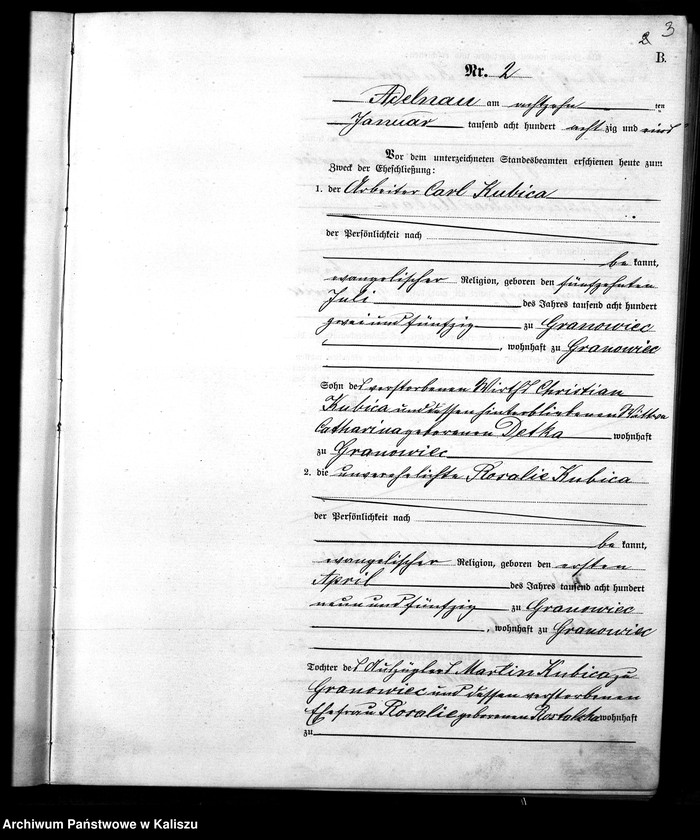 2 3
B.
Nr. 2
Adelnau am achtzehn ten
Januar tausend acht hundert achtzig und eins
Vor dem unterzeichneten Standesbeamten erschienen heute zum
Zweck der Eheschließung:
1. der Arbeiter Carl Kubica
der Persönlichkeit nach
bekannt,
evangelischer Religion, geboren den fünfzehnten
Juli des Jahres tausend acht hundert
zwei und fünfzig zu Granowiec
, wohnhaft zu Granowiec
Sohn des verstorbenen Wirths Christian
Kubica und dessen hinterbliebenen Wittwe
Catharina geborenen Detka wohnhaft
zu Granowiec
2. die unverehelichte Rosalie Kubica
der Persönlichkeit nach
bekannt,
evangelischer Religion, geboren den ersten
April des Jahres tausend acht hundert
neun und fünfzig zu Granowiec
, wohnhaft zu Granowiec
Tochter des Auszüglers Martin Kubica zu
Granowiec und dessen verstorbenen
Ehefrau Rosalie geborenen wohnhaft
zu
Archiwum Państwowe w Kaliszu